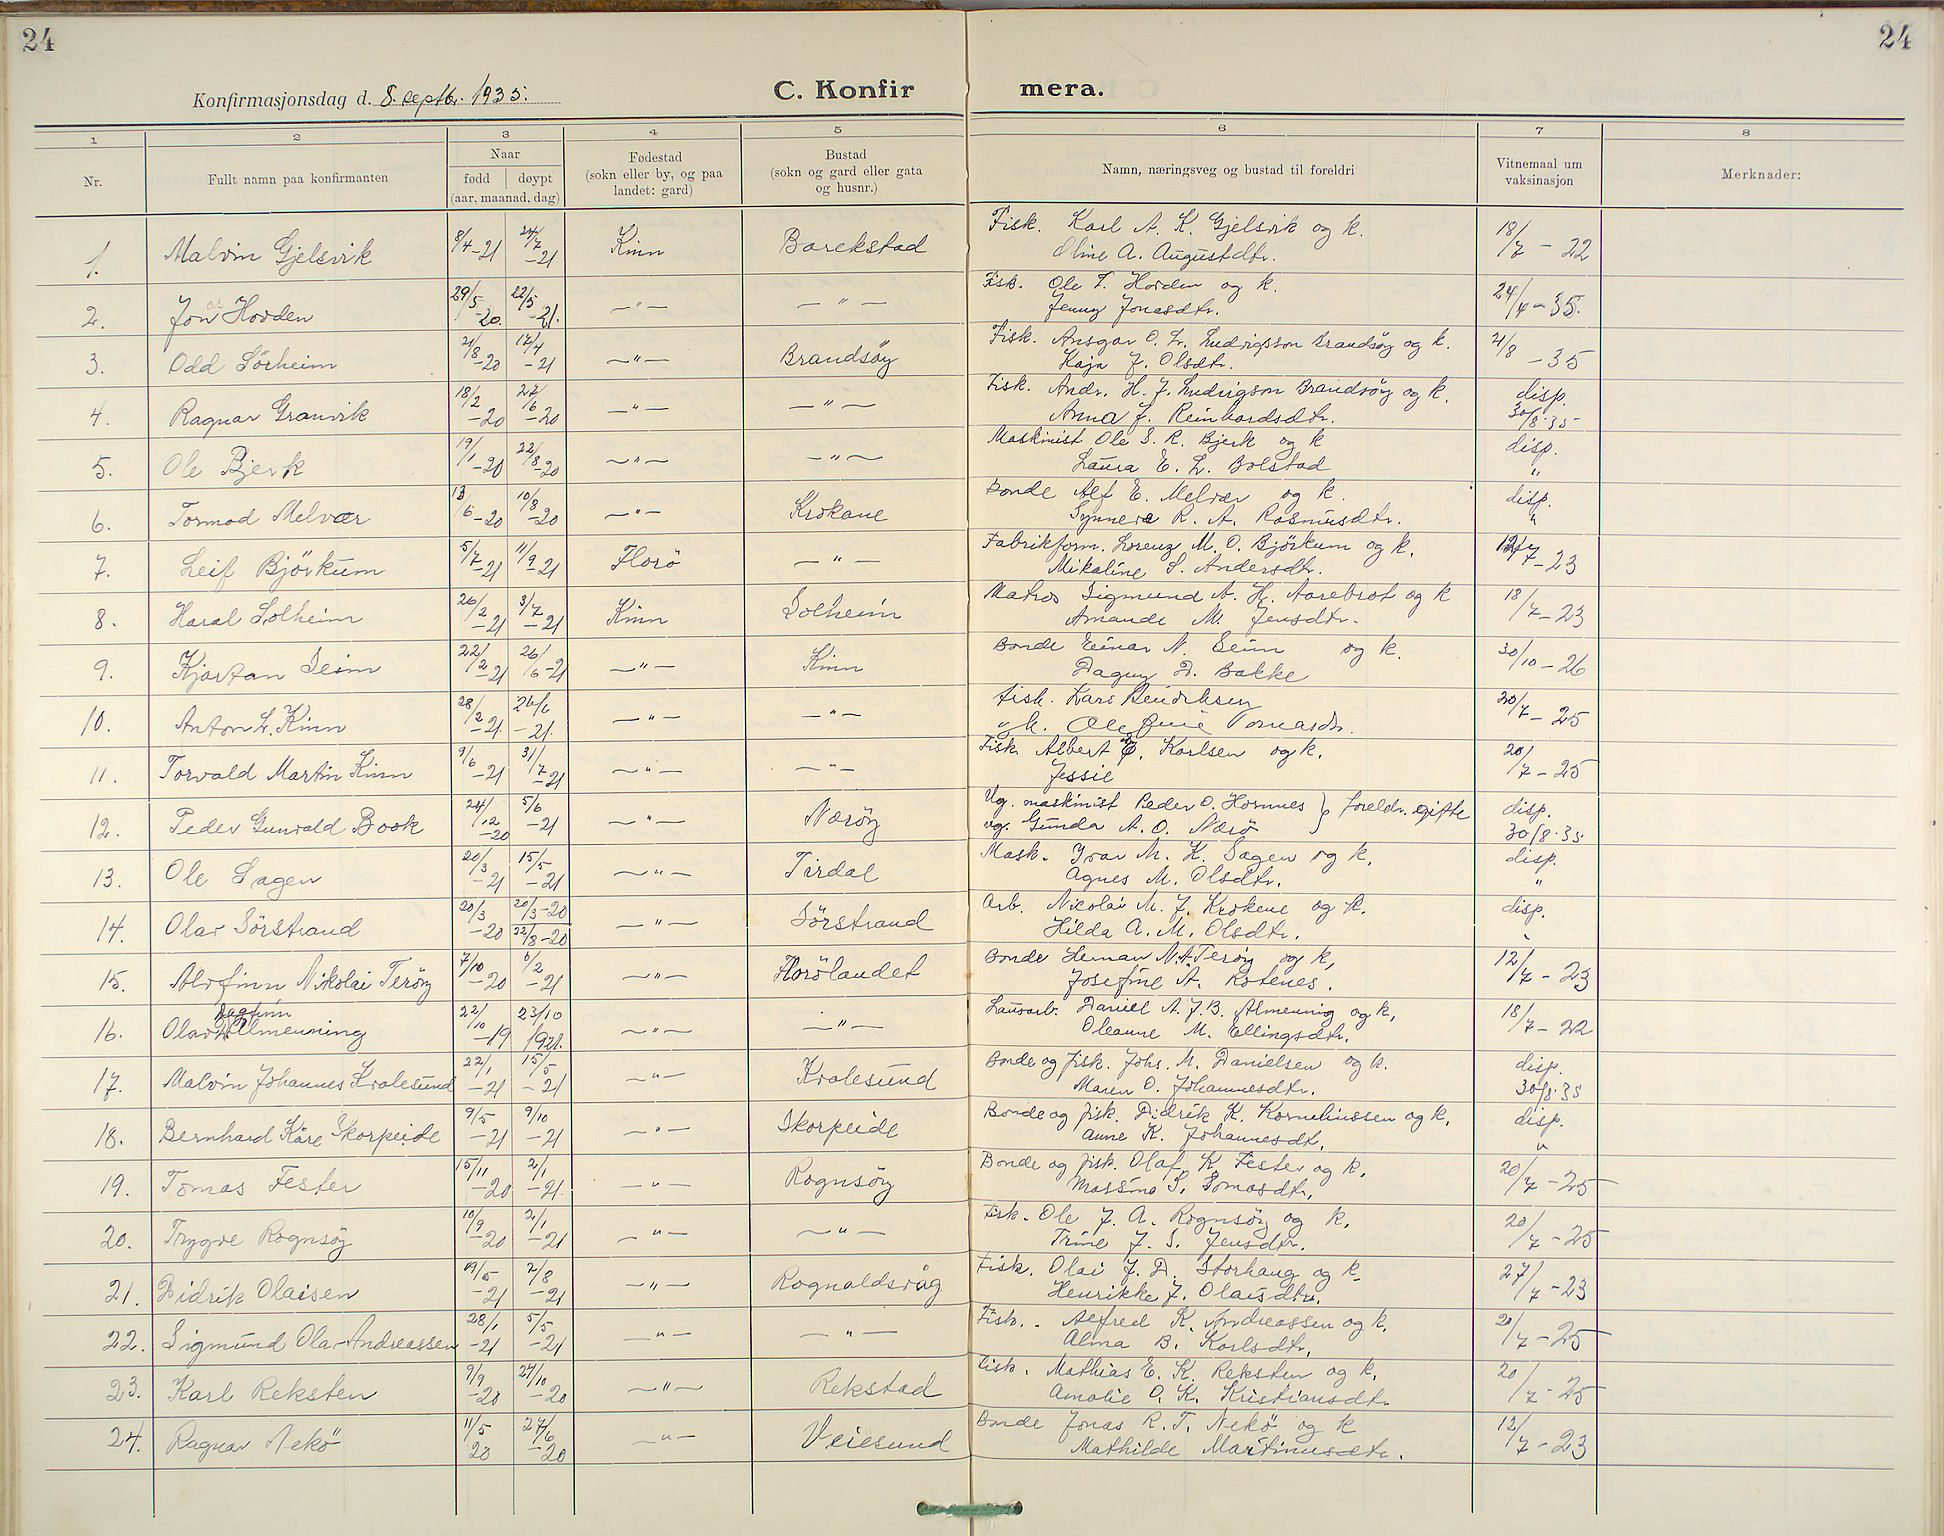 24
24
Konfirmasjonsdag d. 8. septbr. 1935.
C. Konfir
mera.
1 2 3 4 5 6 7 8
Nr.
Fullt namn paa konfirmanten
Naar
fødd
døypt
(aar, maanad, dag)
Fødestad
(sokn eller by, og paa
landet: gard)
Bustad
(sokn og gard eller gata
og husnr.)
Namn, næringsveg og bustad til foreldri
Vitnemaal um
vaksinasjon
Merknader:
1. Malvin Gjelsvik 8/4-21 24/7-21 Kinn Barekstad Fisk. Karl A. K. Gjelsvik og k. 18/7-22
Oline A. Augustdtr.
2. Jon Hovden 29/5-20. 22/5-21. -"- -"- Fisk. Ole T. Hovden og k. 24/4-35.
Jenny Jonasdtr.
3. Odd Sörheim 21/8-20 17/4-21 -"- Brandsöy Fisk. Ansgar O. L. Ludvigsson Brandsöy og k. 21/8-35
Kaja J. Olsdtr.
4. Ragnar Granvik 18/2-20 27/6-20 -"- -"- Fisk. Andr. H. J. Ludvigson Brandsöy og k. disp.
Anna J. Reinhardsdtr. 30/8-35
5. Ole Bjerk 19/1-20 22/8-20 -"- -"- Maskinist Ole S. R. Bjerk og k disp.
Laura E. L. Bolstad "
6. Tormod Melvær 13/6-20 10/8-20 -"- Krokane Bonde Alf E. Melvær og k. disp.
Synneve R. A. Rasmusdtr. "
7. Leif Björkum 5/7-21 11/9-21 Florö -"- Fabrikform. Lorenz M. O. Björkum og k. 12/7-23
Mikaline S. Andersdtr.
8. Haral Solheim 26/2-21 3/7-21 Kinn Solheim Matros Sigmund A. H. Aarebrot og k 18/7-23
Amande M. Jensdtr.
9. Kjartan Seim 22/2-21 26/6-21 -"- Kinn Bonde Einar N. Seim og k. 30/10-26
Dagny D. Bakke
10. Anton L. Kinn 28/2-21. 26/6-21. -"- -"- Fisk. Lars Hendriksen 20/7-25
og k.
11. Torvald Martin Kinn 9/6-21 31/7-21 -"- -"- Fisk. Albert E. Karlsen og k. 20/7-25
Jessie
12. Peder Gunvald Book 24/12-20 5/6-21 -"- Næröy Ug. maskinist Peder O. Hornnes } foreldr. gifte disp.
ug. Gunda A. O. Nærö 30/8-35
13. Ole Sagen 20/3-21 15/5-21 -"- Tirdal Mask. Ivar M. K. Sagen og k. disp.
Agnes M. Olsdtr. "
14. Olav Sörstrand 20/3-20 20/3-20 22/8-20 -"- Sörstrand Arb. Nicolai M. J. Krokene og k. disp.
Hilda A. M. Olsdtr. "
15. Alvfinn Nikolai Teröy 7/10-20 6/2-21 -"- Florölandet Bonde Herman N. A. Teröy og k. 12/7-23
Josefine A. Rotenes.
Dagfinn
16. Olav Almenning 22/10-19 23/10 1921. -"- -"- Lausarb. Daniel A. J. B. Almenning og k. 18/7-22
Oleanne M. Ellingsdtr.
17. Malvin Johannes Kvalesund 22/1-21 15/5-21 -"- Kvalesund Bonde og fisk. Johs. M. Danielsen og k. disp.
Maren O. Johannesdtr. 30/8-35
18. Bernhard Kåre Skorpeide 9/5-21 9/10-21 -"- Skorpeide Bonde og fisk. Didrik K. Korneliussen og k. disp.
Anne K. Johannesdt. "
19. Tomas Fester 15/11-20 2/1-21. -"- Rognsöy Bonde og fisk. Olaf K. Fester og k. 20/7-25
Massina S. Tomasdtr.
20. Trygve Rognsöy 10/9-20 2/1-21 -"- -"- Fisk. Ole J. A. Rognsöy og k. 20/7-25
Trine J. S. Jensdtr.
21. Didrik Olaisen 19/5-21 2/8-21 -"- Rognaldsvåg Fisk. Olai J. D. Storhaug og k. 27/7-23
Henrikke J. Olaisdtr.
22. Sigmund Olav Andreassen 28/1-21 5/5-21 -"- -"- Fisk. Alfred K. Andreassen og k. 20/7-25
Alma B. Karlsdtr.
23. Karl Reksten 9/9-20 24/10-20 -"- Rekstad Fisk. Mathias E. K. Reksten og k. 20/7-25
Amalie O. K. Kristiansdtr.
24. Ragnar Nekö 11/5 20 27/6-20 -"- Veiesund Bonde Jonas R. T. Nekö og k 12/7-23
Mathilde Martinusdtr.